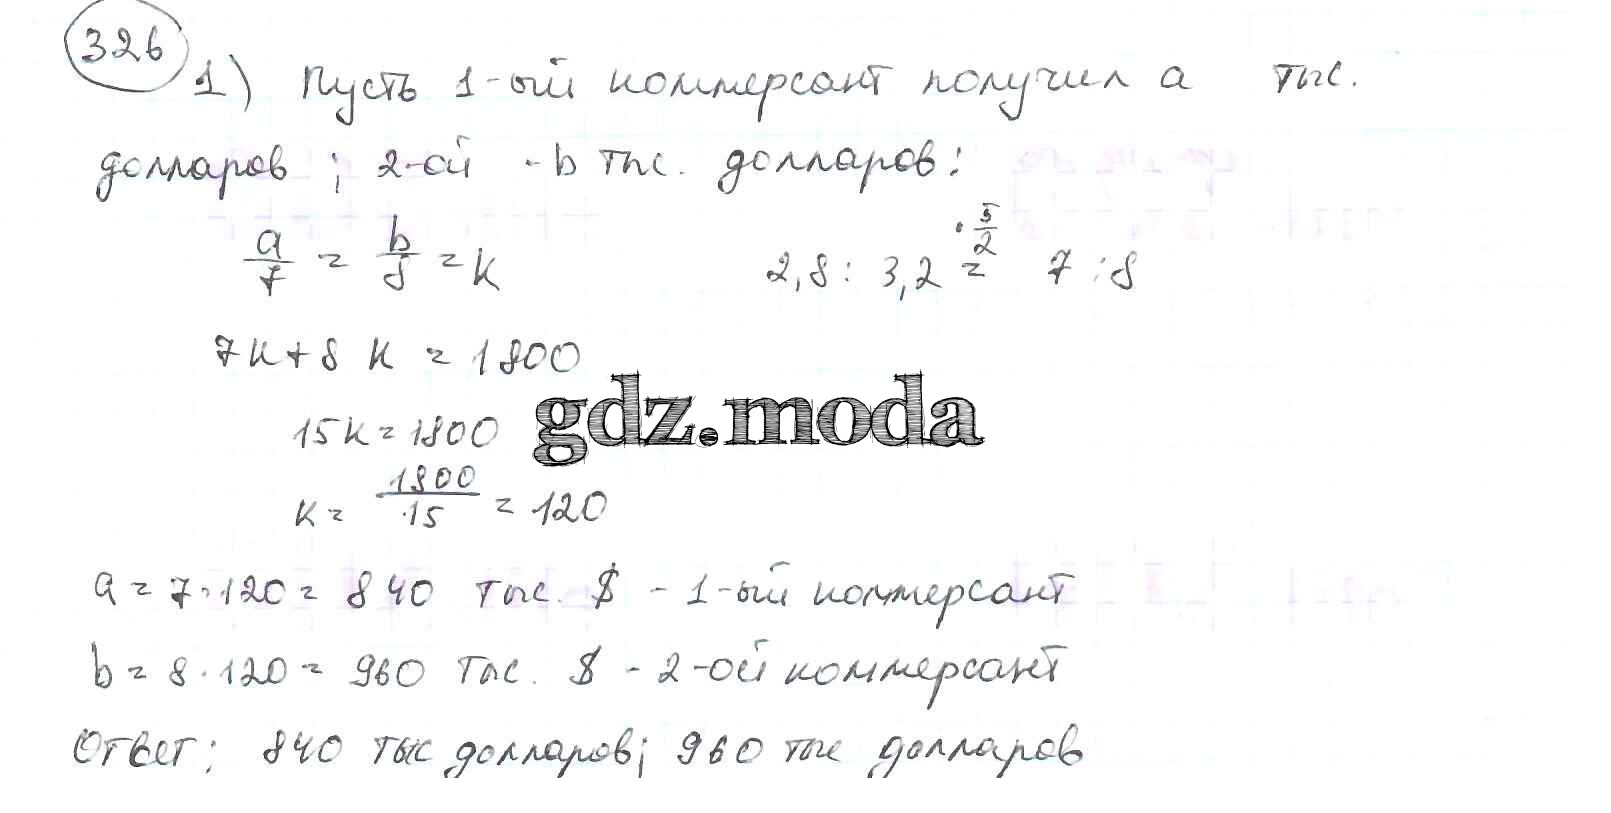 326
1) Пусть 1-ый коммерсант получил a тыс.
долларов; 2-ой - b тыс. долларов:
a/7 = b/8 = k
2,8 : 3,2 = 7 : 8
· 5/2
7k+8k = 1800
15k = 1800
gdz.moda
k = 1800/15 = 120
a = 7·120 = 840 тыс. $ - 1-ый коммерсант
b = 8·120 = 960 тыс. $ - 2-ой коммерсант
Ответ: 840 тыс долларов; 960 тыс долларов